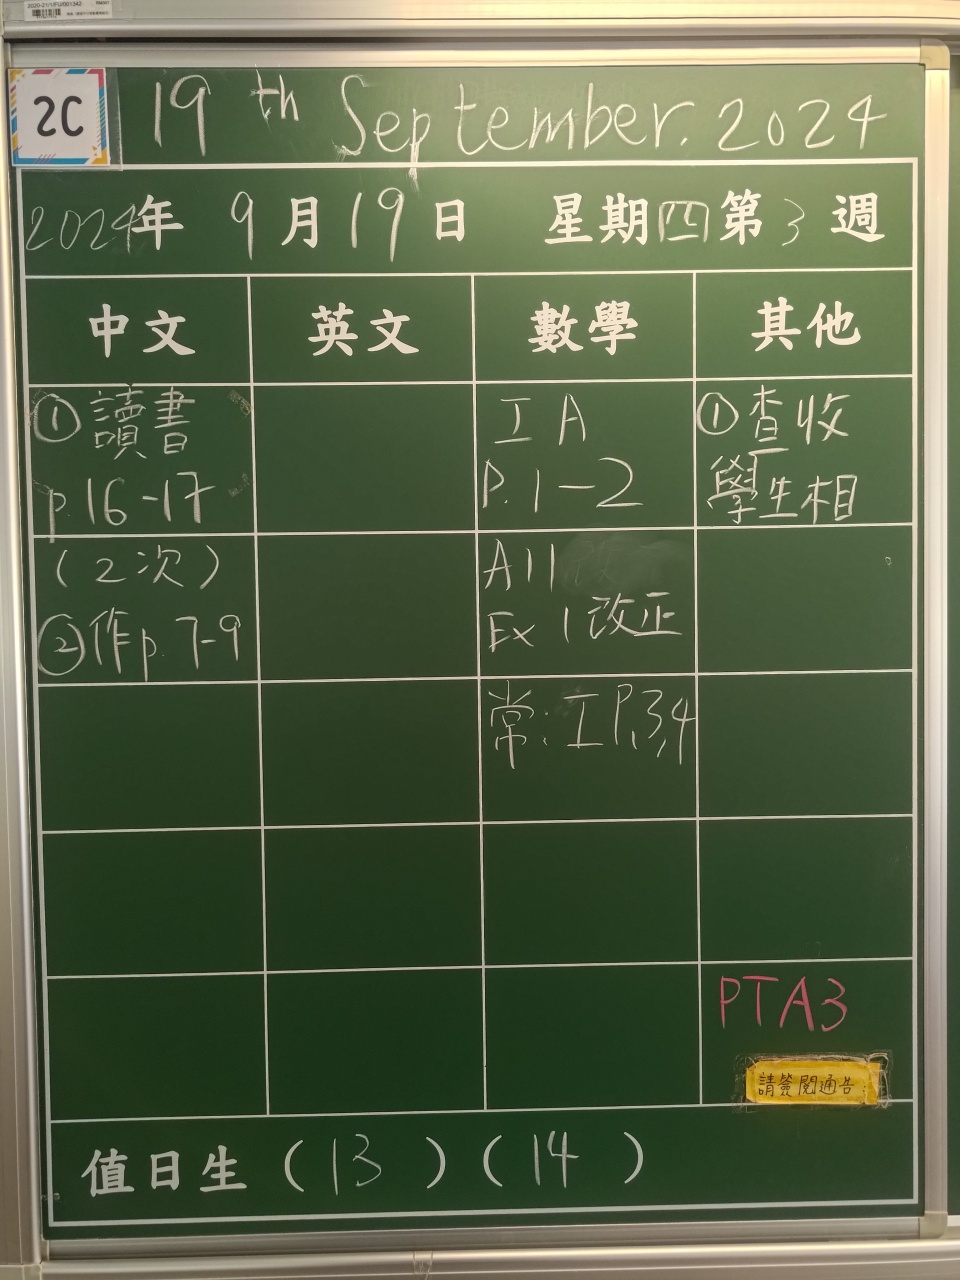 2020-21/1/FU/001342
2C
19th September. 2024
2024年 9月19日 星期四第3週
中文 英文 數學 其他
①讀書
p.16-17
(2次)
②作p.7-9
工A
P.1-2
A11
Ex 1改正
常:工P.3,4
①查收
學生相
PTA3
請簽閱通告
值日生(13)(14)